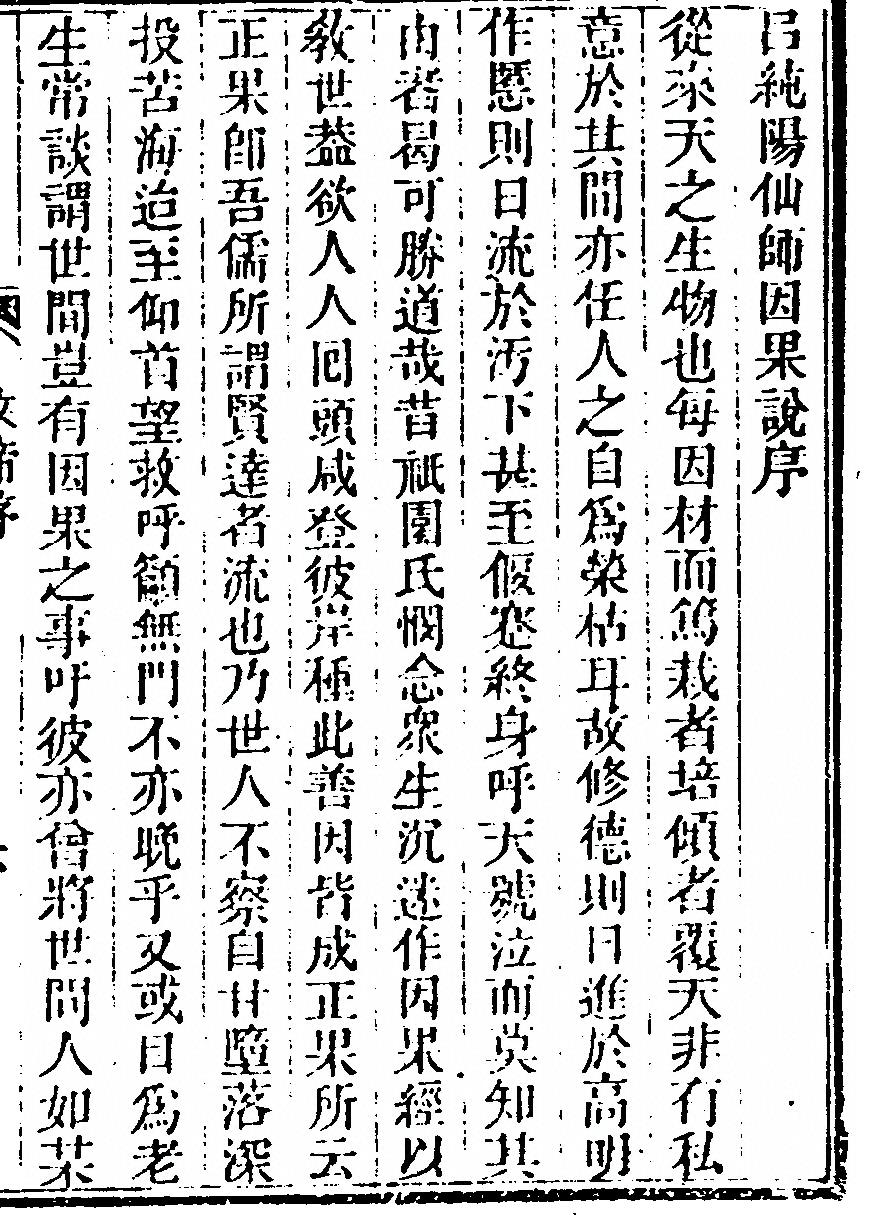 呂純陽仙師因果說序
從來天之生物也每因材而篤栽者培傾者覆天非有私
意於其間亦任人之自爲榮枯耳故修德則日進於高明
作慝則日流於汚下甚至偃蹇終身呼天號泣而莫知其
由者曷可勝道哉昔祇園氏憫念衆生沉迷作因果經以
敎世葢欲人人囘頭咸登彼岸種此善因皆成正果所云
正果卽吾儒所謂賢達者流也乃世人不察自甘墮落深
投苦海迨至仰首望救呼籲無門不亦晚乎又或目爲老
生常談謂世間豈有因果之事吁彼亦曾將世間人如某